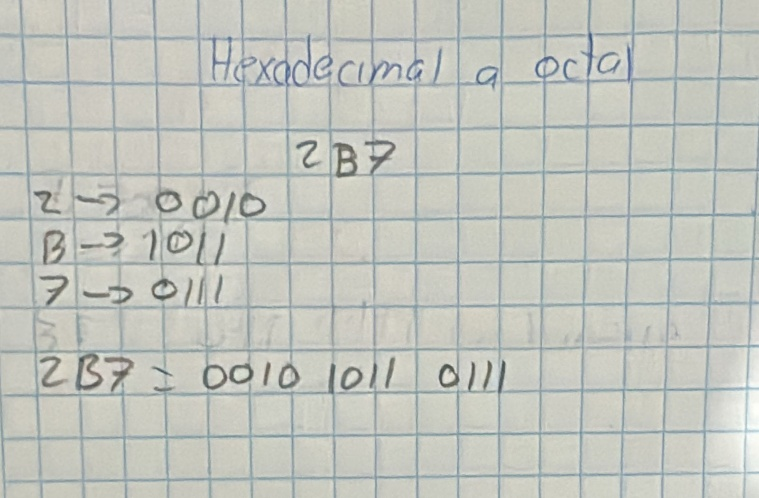 Hexadecimal a octal
2B7
2 → 0010
B → 1011
7 → 0111
2B7 = 0010 1011 0111